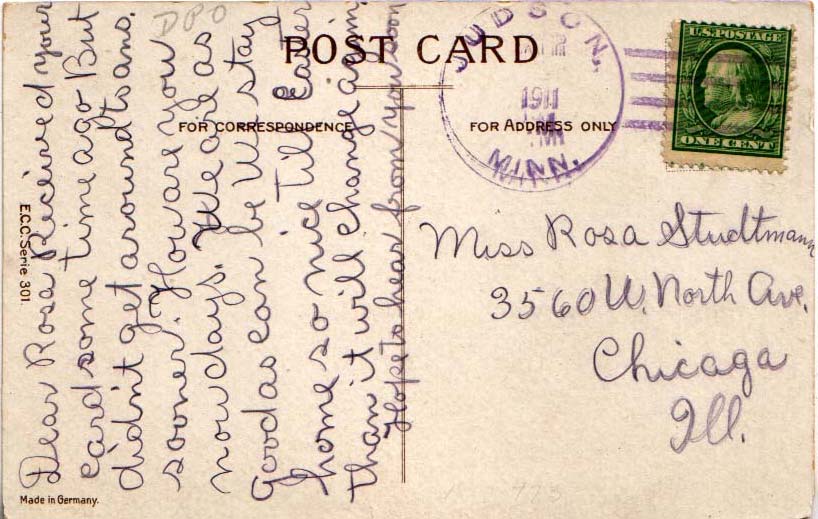 DPO
POST CARD
JUDSON,
1911
MINN.
U.S. POSTAGE
ONE CENT
FOR CORRESPONDENCE
FOR ADDRESS ONLY
Dear Rosa Recieved your
card some time ago But
didn't get around to ans.
sooner. How are you
now days. We are as
Good as can be We stay
home so nice Till Easter
Than it will change again
Hope to hear from you soon
Miss Rosa Studtmann
3560 W. North Ave.
Chicaga
Ill.
E.C.C. Serie 301.
Made in Germany.
773